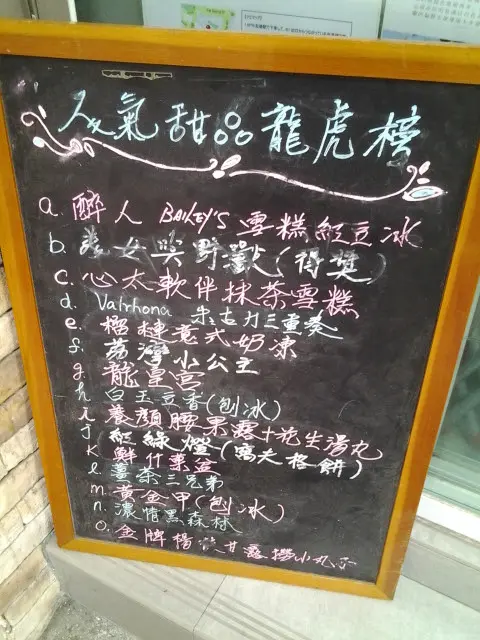 人氣甜品龍虎榜
a. 醉人 BAILEY'S 雪糕紅豆冰
b. 美女與野獸(得獎)
c. 心太軟伴抹茶雪糕
d. Valrhona 朱古力三重奏
e. 榴槤意式奶凍
f. 荔灣小公主
g. 龍皇宮
h. 白玉豆香(刨冰)
i. 養顏腰果露+花生湯丸
j. 紅綠燈(窩夫格餅)
k. 鮮什菓盆
l. 薑茶三兄弟
m. 黃金甲(刨冰)
n. 濃情黑森林
o. 金牌楊枝甘露撈小丸子